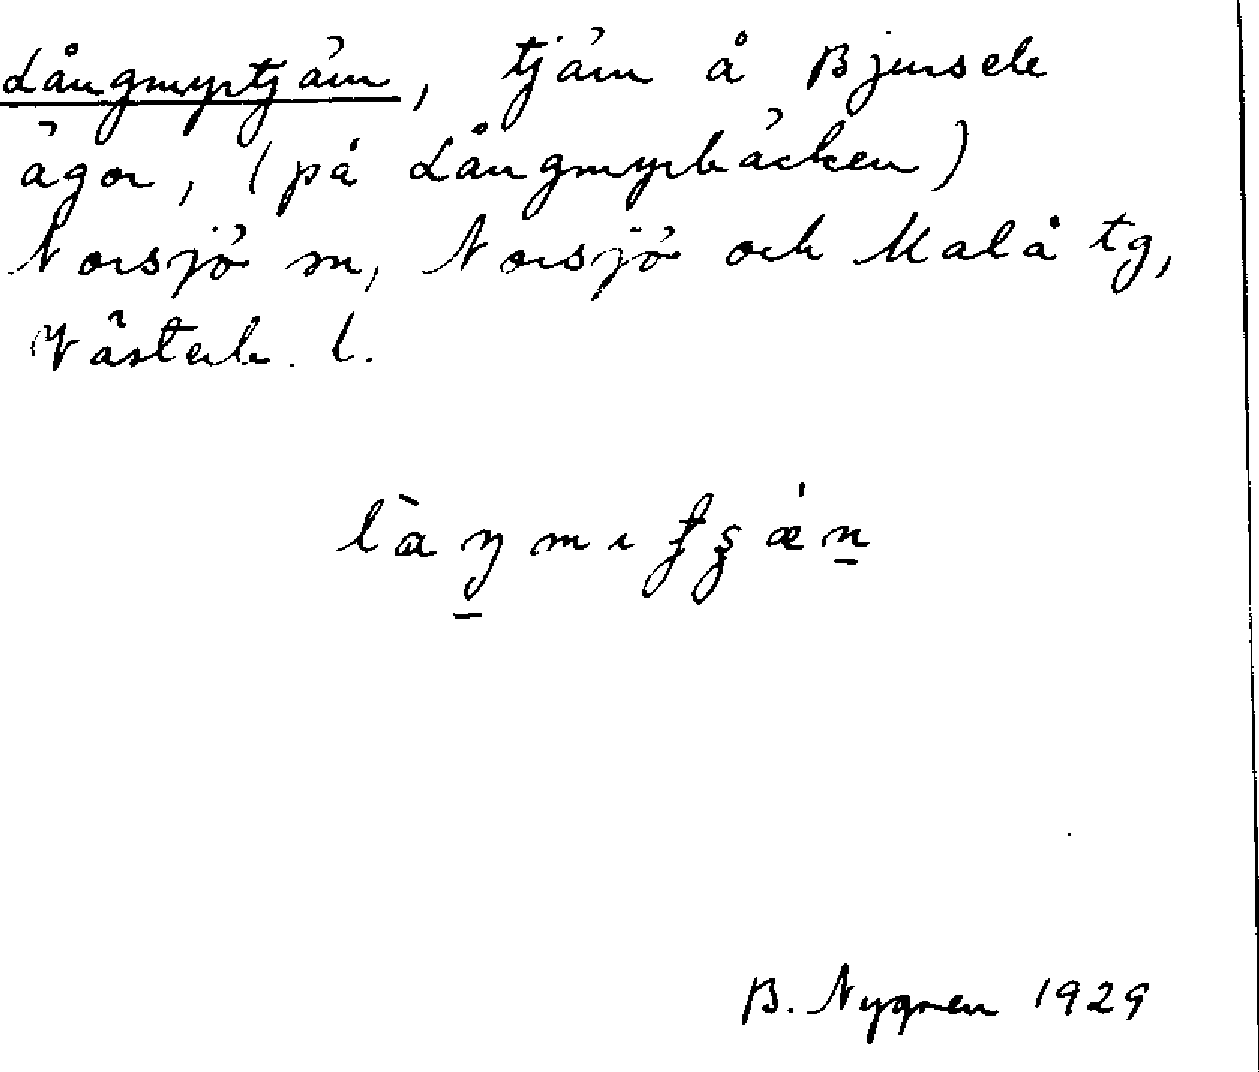 Långmyrtjärn, tjärn å Bjursele
ägor, (på Långmyrbäcken)
Norsjö sn, Norsjö och Malå tg,
Västerb. l.
B. Nygren 1929